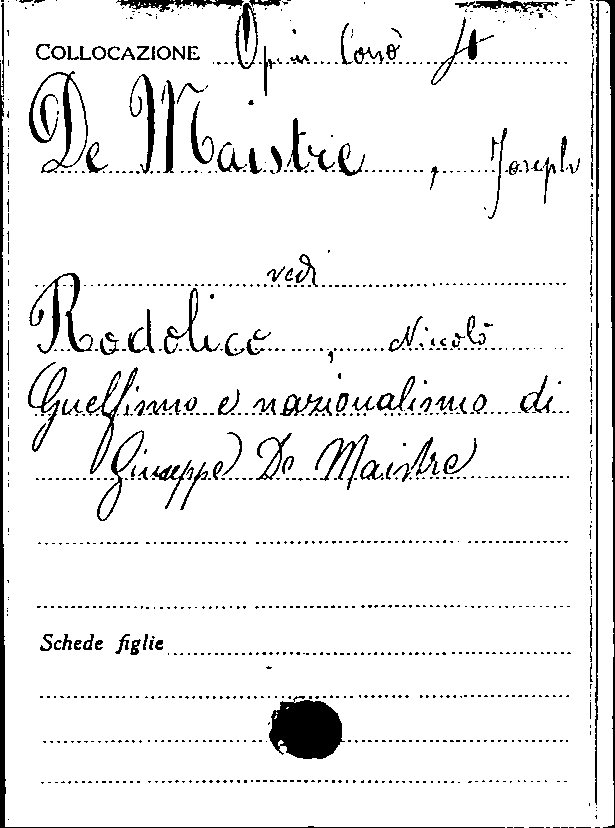 COLLOCAZIONE Opin Corrò
De Maistre, Joseph
vedi
Rodolico, Niccolò
Guelfismo e nazionalismo di
Giuseppe De Maistre
Schede figlie